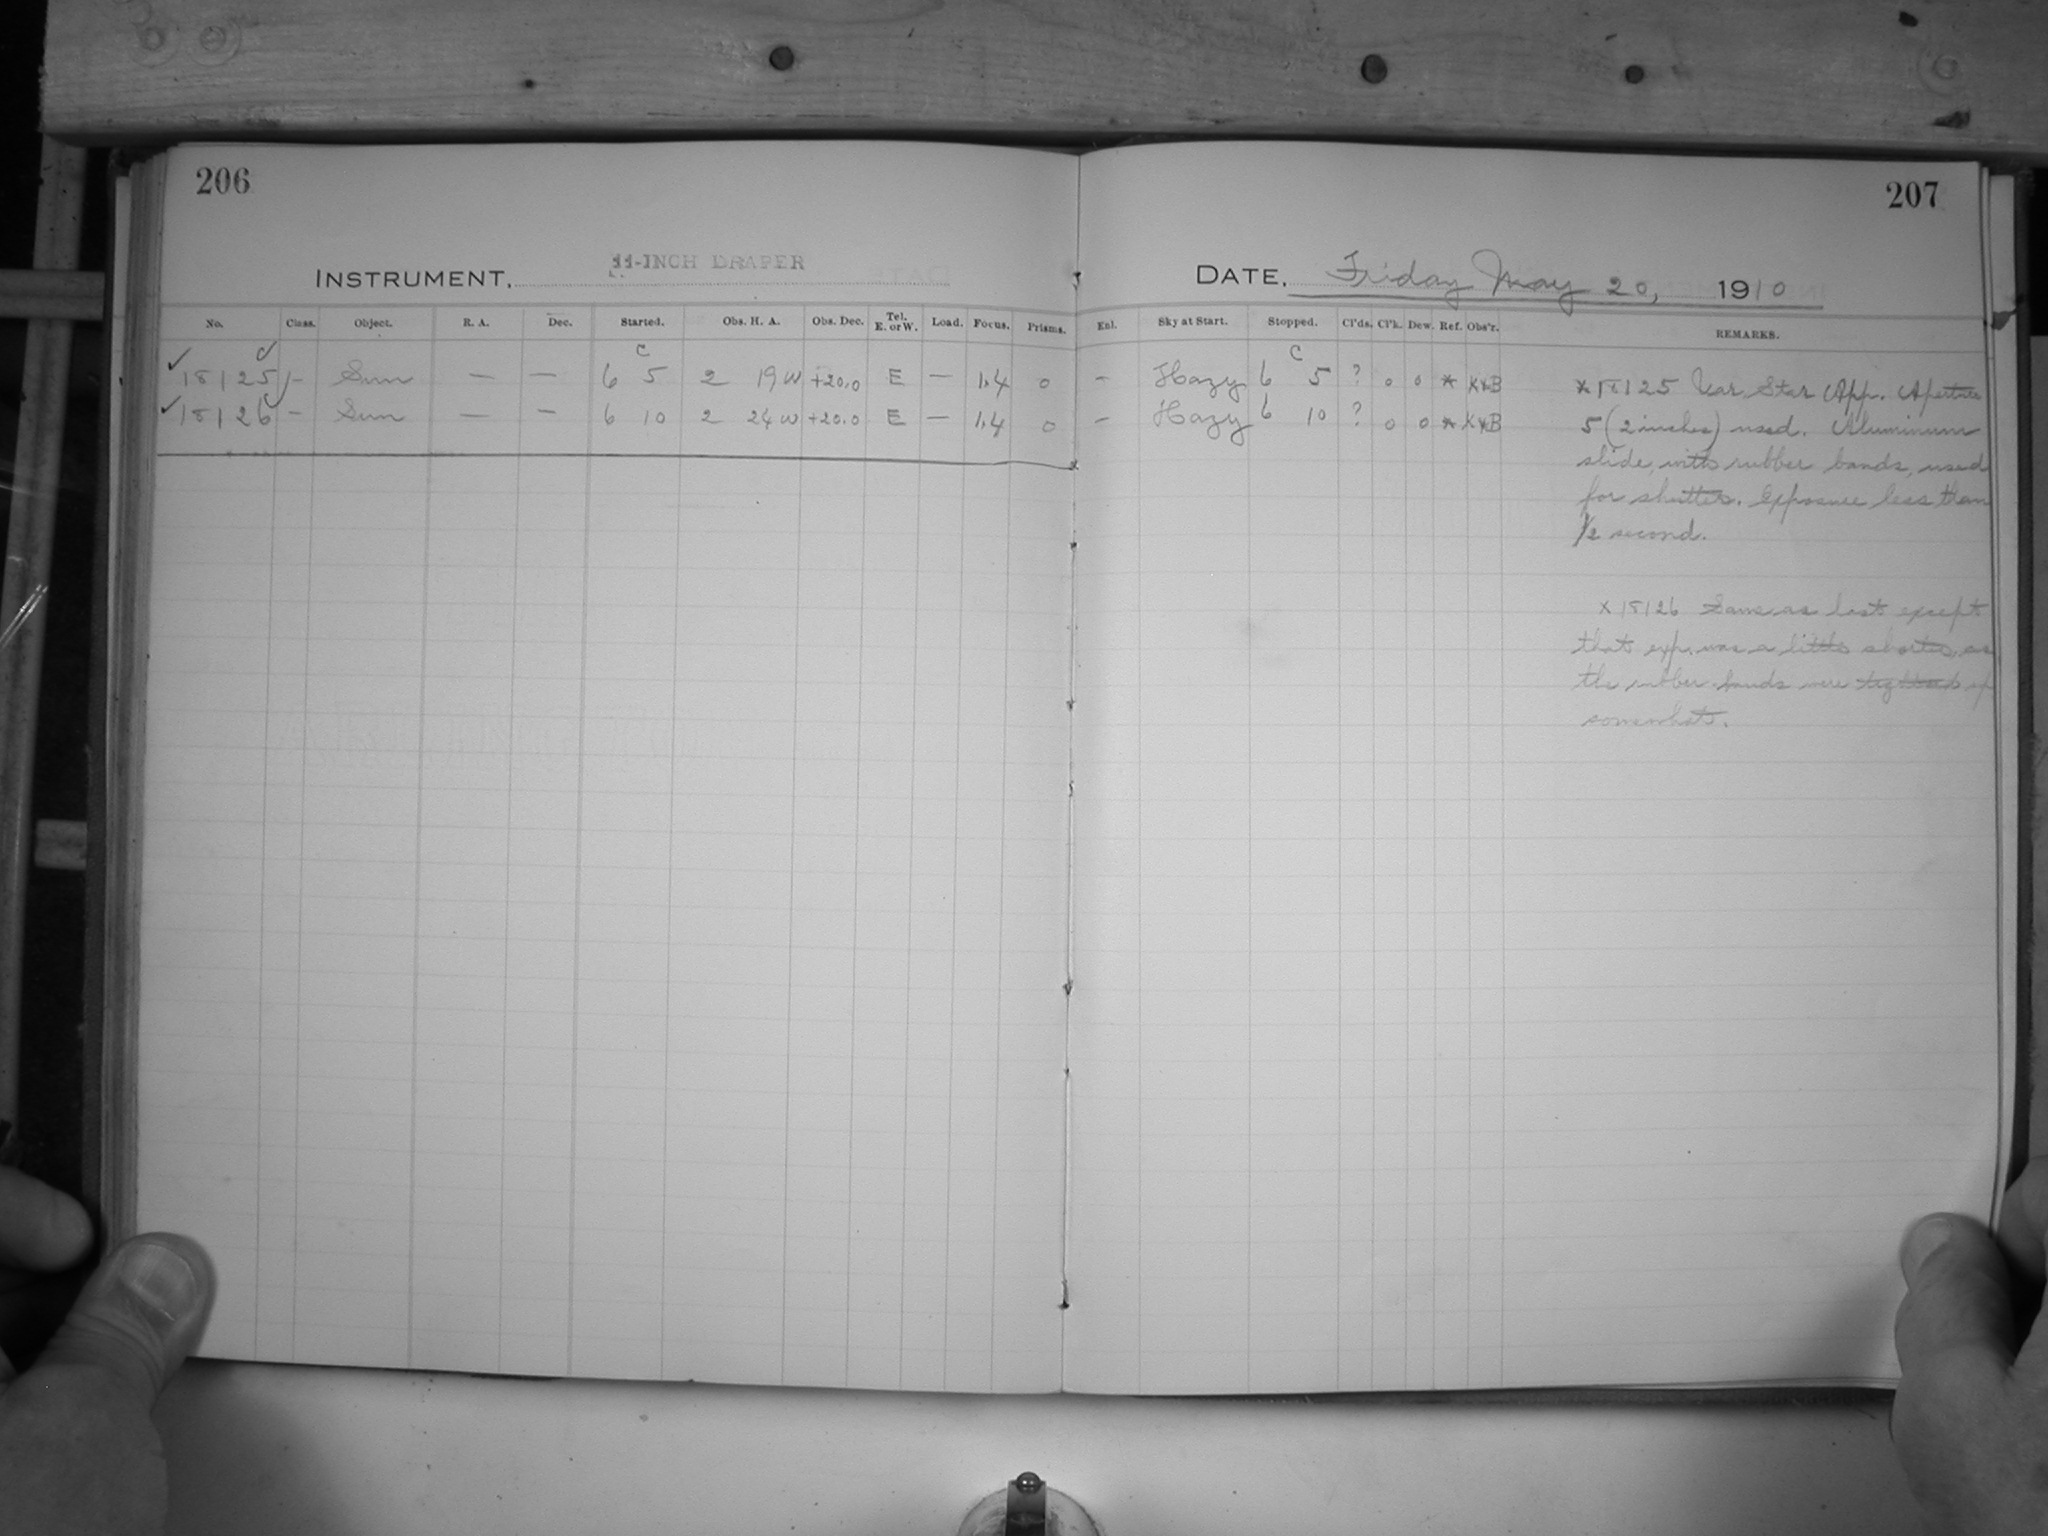 206
207
INSTRUMENT. 11-INCH DRAPER
DATE. Friday May 20, 1910
No. Class. Object. R. A. Dec. Started. Obs. H. A. Obs. Dec. Tel. E. or W. Load. Focus. Prisms. Enl. Sky at Start. Stopped. Cl'ds. Cl'k. Dew. Ref. Obs'r. REMARKS.
C C
18125 - Sun — — 6 5 2 19 W +20.0 E — 1.4 0 - Hazy 6 5 ? 0 0 * B
18126 - Sun — — 6 10 2 24 W +20.0 E — 1.4 0 - Hazy 6 10 ? 0 0 * B
* 18125 Var Star App. Aperture
5 (2 inches) used. Aluminum
slide, with rubber bands, used
for shutter. Exposure less than
1/2 second.
x 18126 Same as last except
that exp. was a little shorter, as
the rubber bands were tightened up
somewhat.